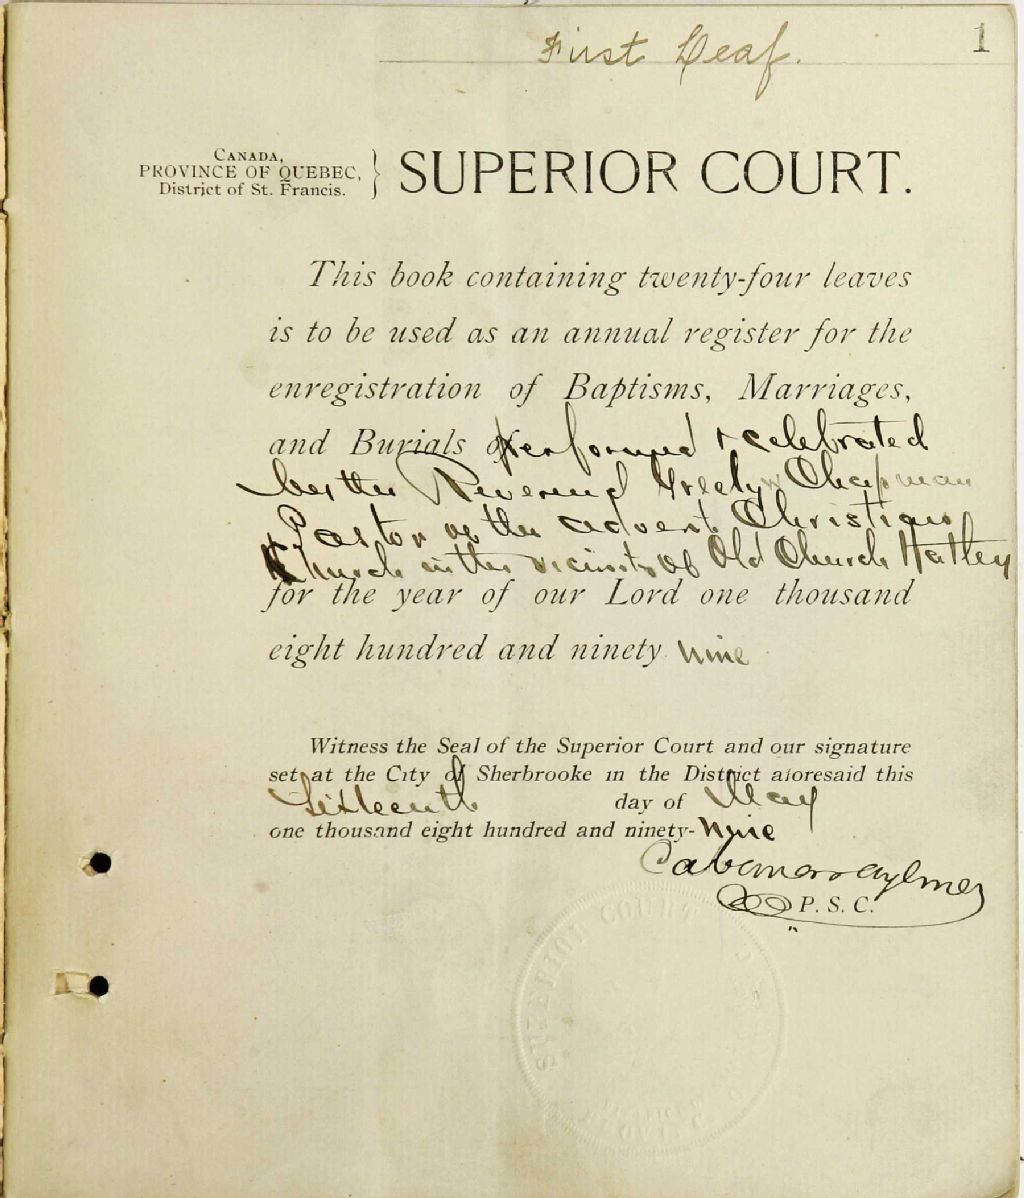 First Leaf.
1
CANADA,
PROVINCE OF QUEBEC,
District of St. Francis.
SUPERIOR COURT.
This book containing twenty-four leaves
is to be used as an annual register for the
enregistration of Baptisms, Marriages,
and Burials performed & celebrated
by the Reverend Greely Chapman
Pastor of the advent Christian
Church in the vicinity of Old Church Hatley
for the year of our Lord one thousand
eight hundred and ninety nine
Witness the Seal of the Superior Court and our signature
set at the City of Sherbrooke in the District aforesaid this
Sixteenth day of May
one thousand eight hundred and ninety-nine
P. S. C.
SUPERIOR COURT